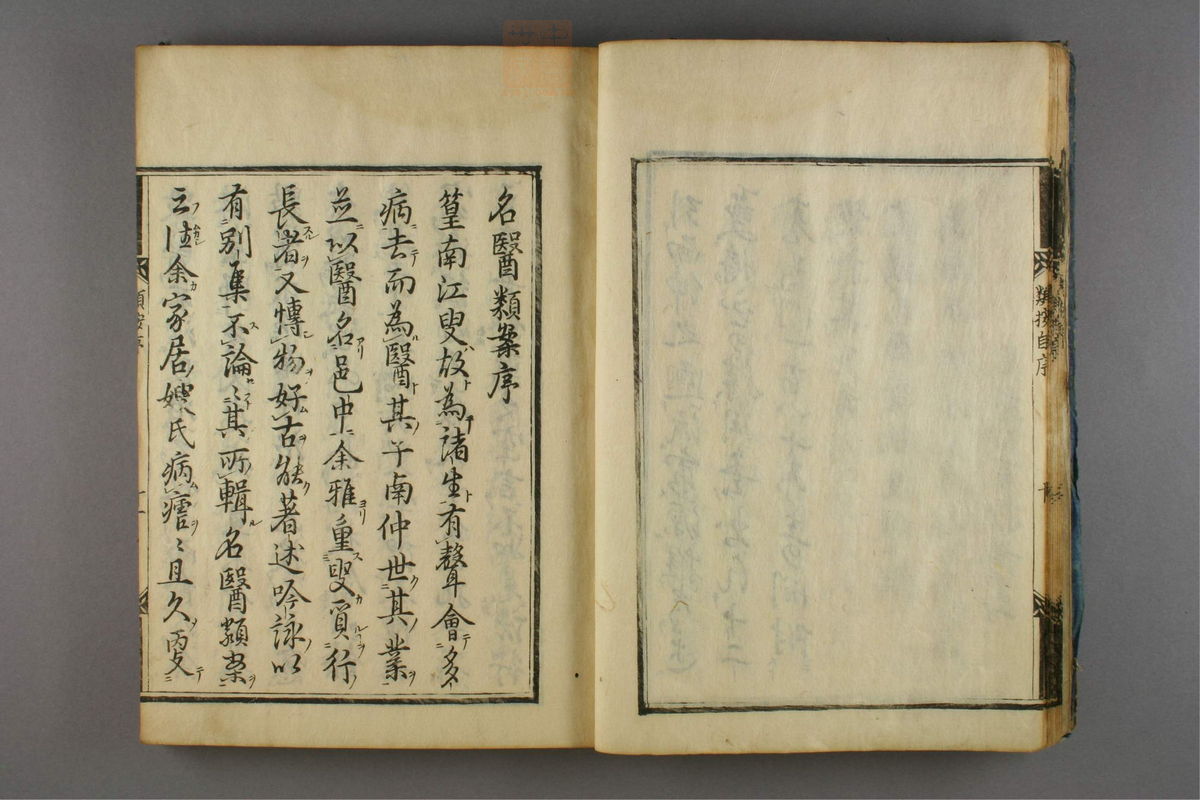 名醫類案序
篁南江叟故為諸生有聲會多
病去而為醫其子南仲世其業
並以醫名邑中余雅重叟質行
長者又博物好古能著述吟詠以
有別集不論〻其所輯名醫類案
云往余家居嫂氏病瘧〻且久更
類按自序